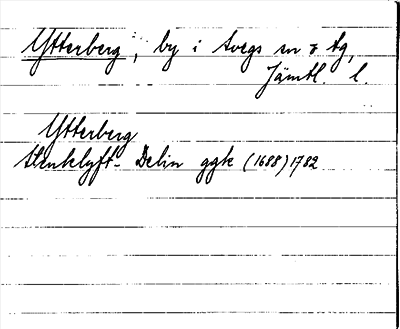 Ytterberg, by i Svegs sn o tg,
Jämtl. l.
Ytterberg
Stenklyft- Delin ggk (1688) 1782